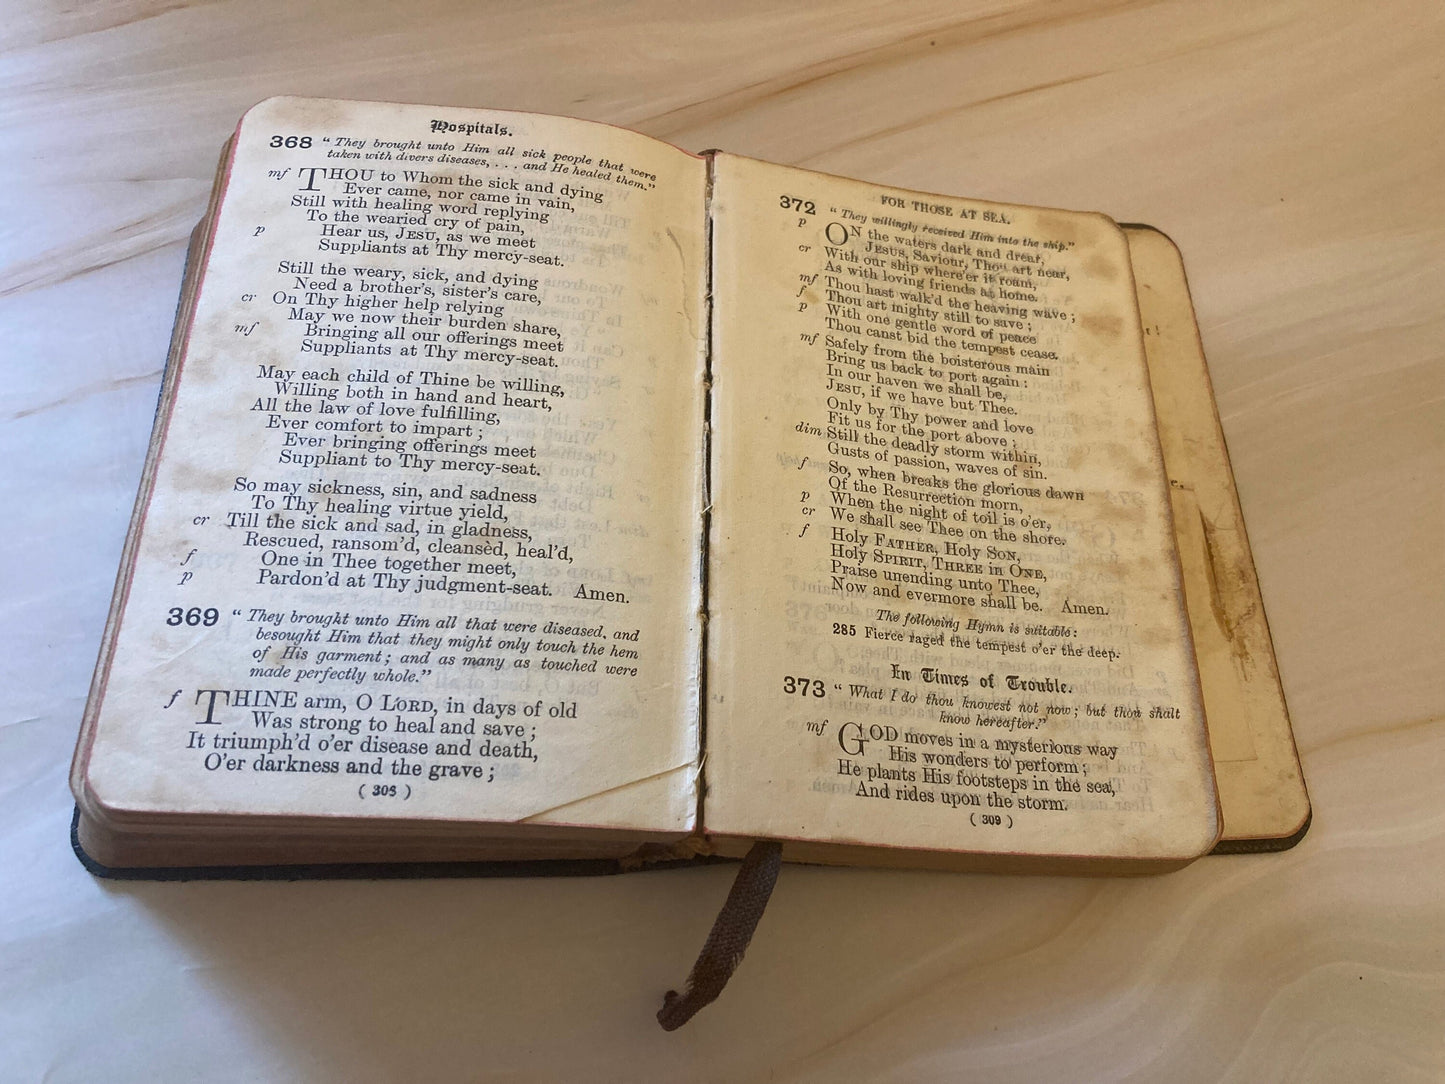 Hospitals.
368 "They brought unto Him all sick people that were
taken with divers diseases, . . . and He healed them."
mf THOU to Whom the sick and dying
Ever came, nor came in vain,
Still with healing word replying
To the wearied cry of pain,
p Hear us, JESU, as we meet
Suppliants at Thy mercy-seat.
Still the weary, sick, and dying
Need a brother's, sister's care,
cr On Thy higher help relying
May we now their burden share,
mf Bringing all our offerings meet
Suppliants at Thy mercy-seat.
May each child of Thine be willing,
Willing both in hand and heart,
All the law of love fulfilling,
Ever comfort to impart ;
Ever bringing offerings meet
Suppliant to Thy mercy-seat.
So may sickness, sin, and sadness
To Thy healing virtue yield,
cr Till the sick and sad, in gladness,
Rescued, ransom'd, cleansèd, heal'd,
f One in Thee together meet,
p Pardon'd at Thy judgment-seat. Amen.
369 "They brought unto Him all that were diseased, and
besought Him that they might only touch the hem
of His garment ; and as many as touched were
made perfectly whole."
f THINE arm, O LORD, in days of old
Was strong to heal and save ;
It triumph'd o'er disease and death,
O'er darkness and the grave ;
( 308 )
FOR THOSE AT SEA.
372 "They willingly received Him into the ship."
p ON the waters dark and drear,
JESUS, Saviour, Thou art near,
cr With our ship where'er it roam,
As with loving friends at home.
mf Thou hast walk'd the heaving wave ;
f Thou art mighty still to save ;
p With one gentle word of peace
Thou canst bid the tempest cease.
mf Safely from the boisterous main
Bring us back to port again :
In our haven we shall be,
JESU, if we have but Thee.
Only by Thy power and love
Fit us for the port above ;
dim Still the deadly storm within,
Gusts of passion, waves of sin.
f So, when breaks the glorious dawn
Of the Resurrection morn,
p When the night of toil is o'er,
cr We shall see Thee on the shore.
f Holy FATHER, Holy SON,
Holy SPIRIT, THREE in ONE,
Praise unending unto Thee,
Now and evermore shall be. Amen.
The following Hymn is suitable :
285 Fierce raged the tempest o'er the deep.
In Times of Trouble.
373 "What I do thou knowest not now ; but thou shalt
know hereafter."
mf GOD moves in a mysterious way
His wonders to perform ;
He plants His footsteps in the sea,
And rides upon the storm.
( 309 )